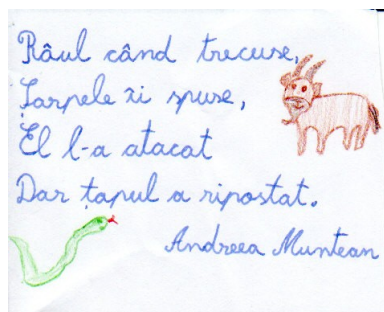 Râul când trecuse,
Șarpele îi spuse,
El l-a atacat
Dar țapul a ripostat.
Andreea Muntean